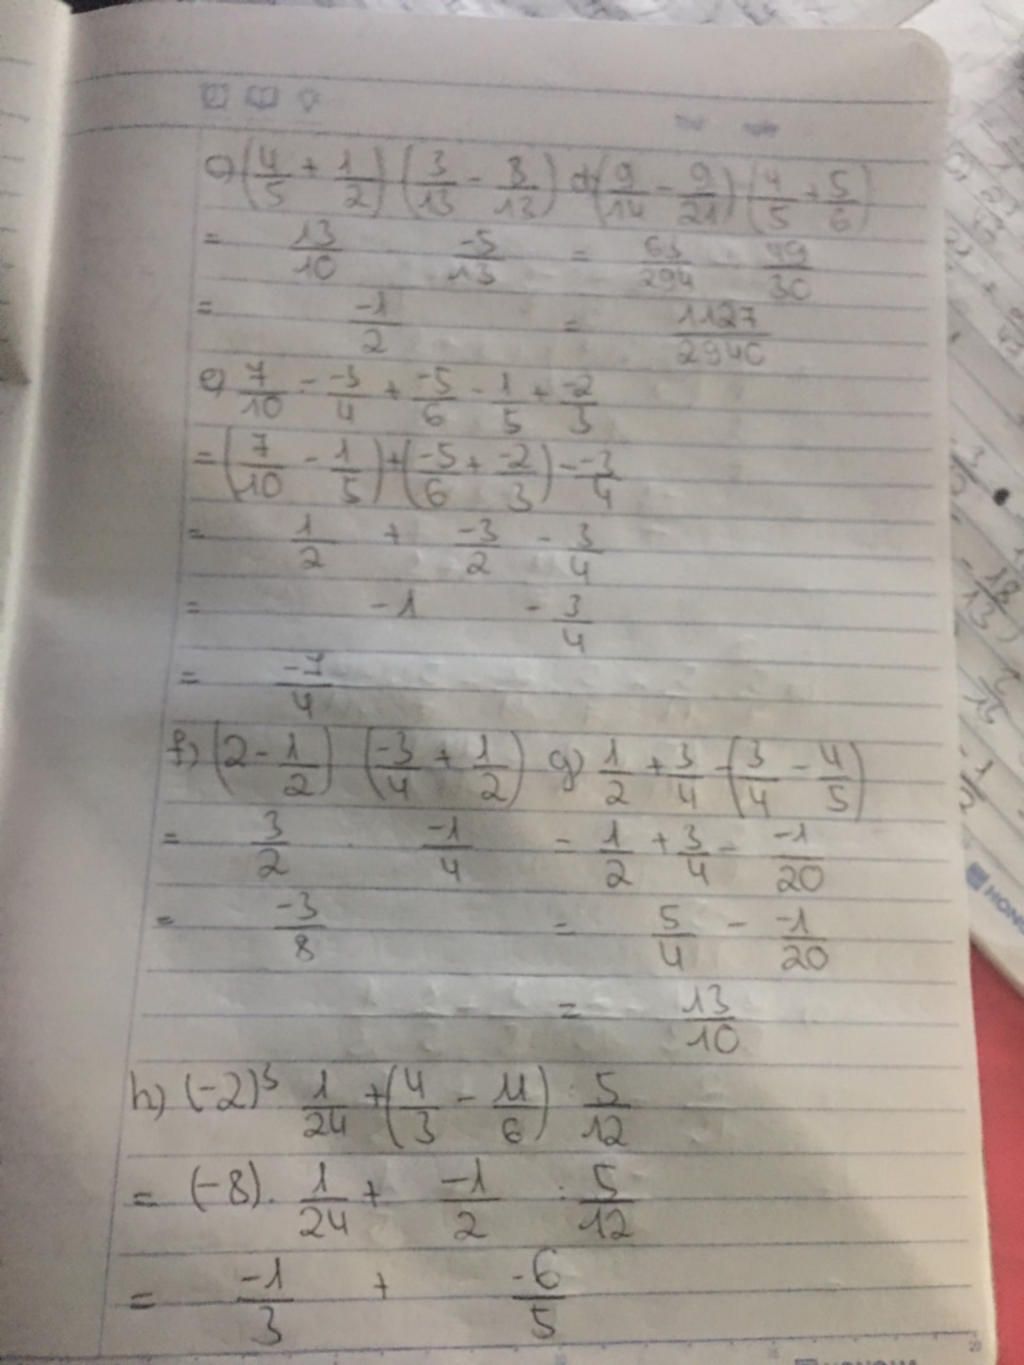 c) (4/5 + 1/2) (3/13 - 8/13) d) (9/14 - 9/21) (4/5 + 5/6)
= 13/10 -5/13 = 63/294 . 49/30
= -1/2 = 1127/2940
e) 7/10 - -3/4 + -5/6 - 1/5 + -2/3
= (7/10 - 1/5) + (-5/6 + -2/3) - -3/4
= 1/2 + -3/2 - 3/4
= -1 - 3/4
= -7/4
f) (2 - 1/2) (-3/4 + 1/2) g) 1/2 + 3/4 - (3/4 - 4/5)
= 3/2 . -1/4 = 1/2 + 3/4 - -1/20
= -3/8 = 5/4 - -1/20
= 13/10
h) (-2)³ 1/24 + (4/3 - 11/6) : 5/12
= (-8) . 1/24 + -1/2 : 5/12
= -1/3 + -6/5